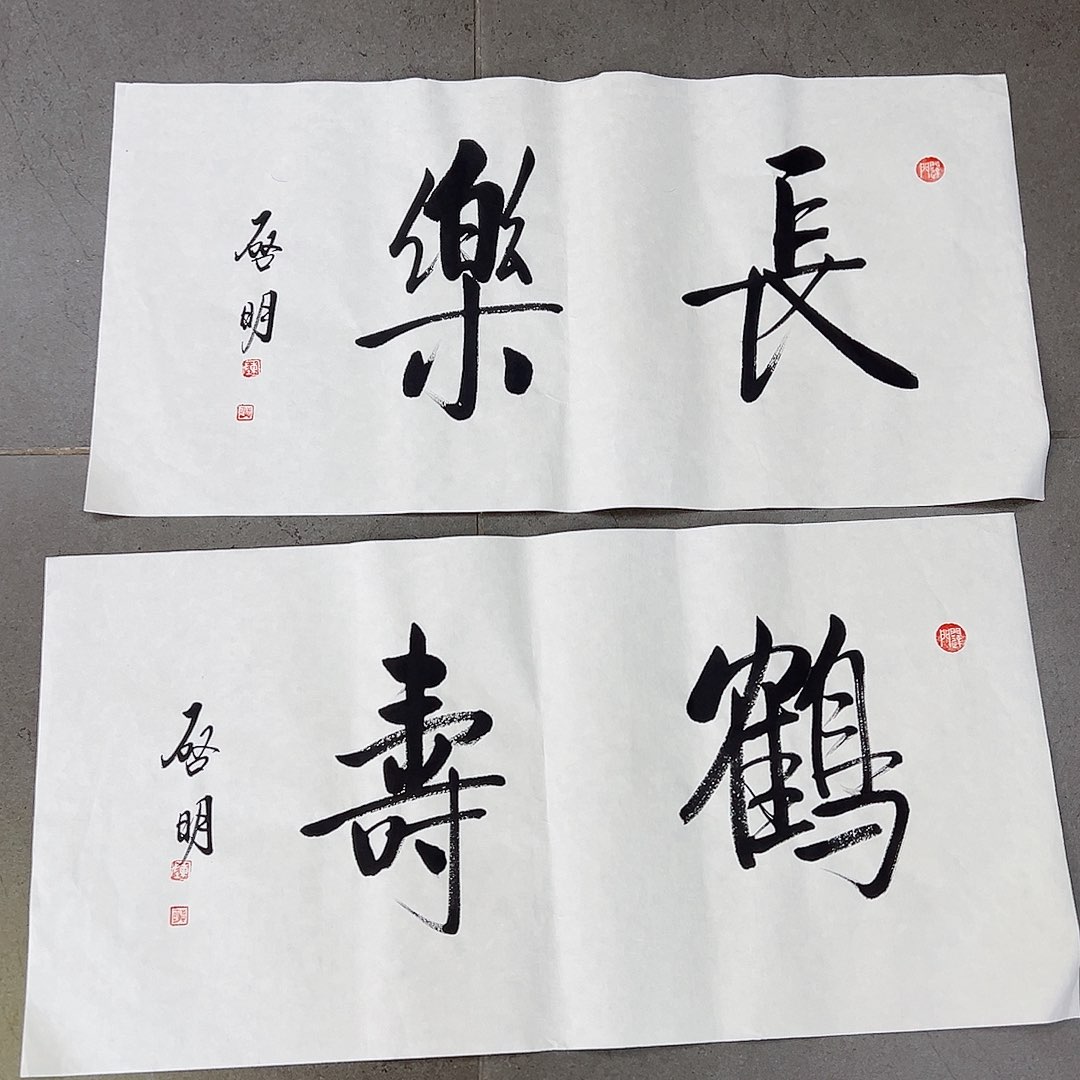 長樂
啓明
鶴壽
啓明